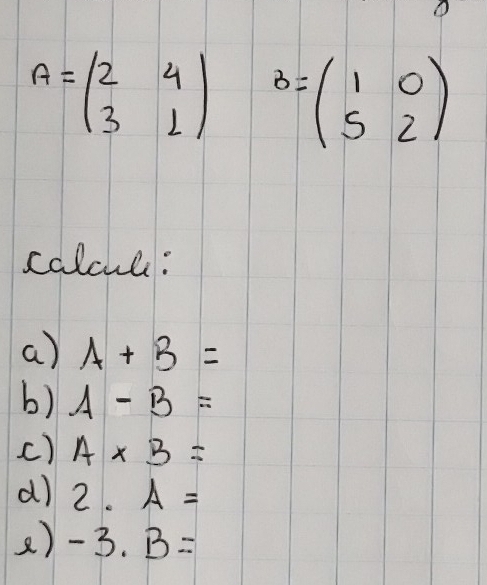 A = (2 4
3 1) B = (1 0
5 2)
calcule:
a) A + B =
b) A - B =
c) A x B =
d) 2 . A =
e) -3 . B =